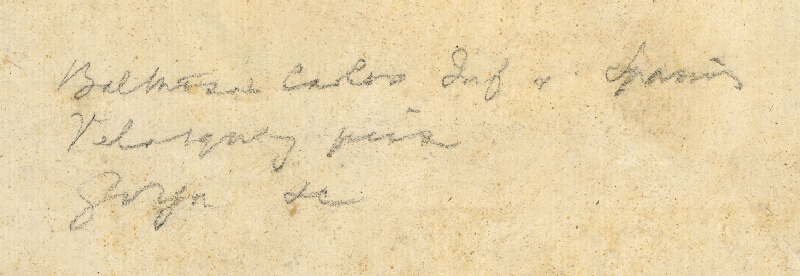 Baltasar Carlos Inf v. Spanien
Velasquez pinx
Goya sc